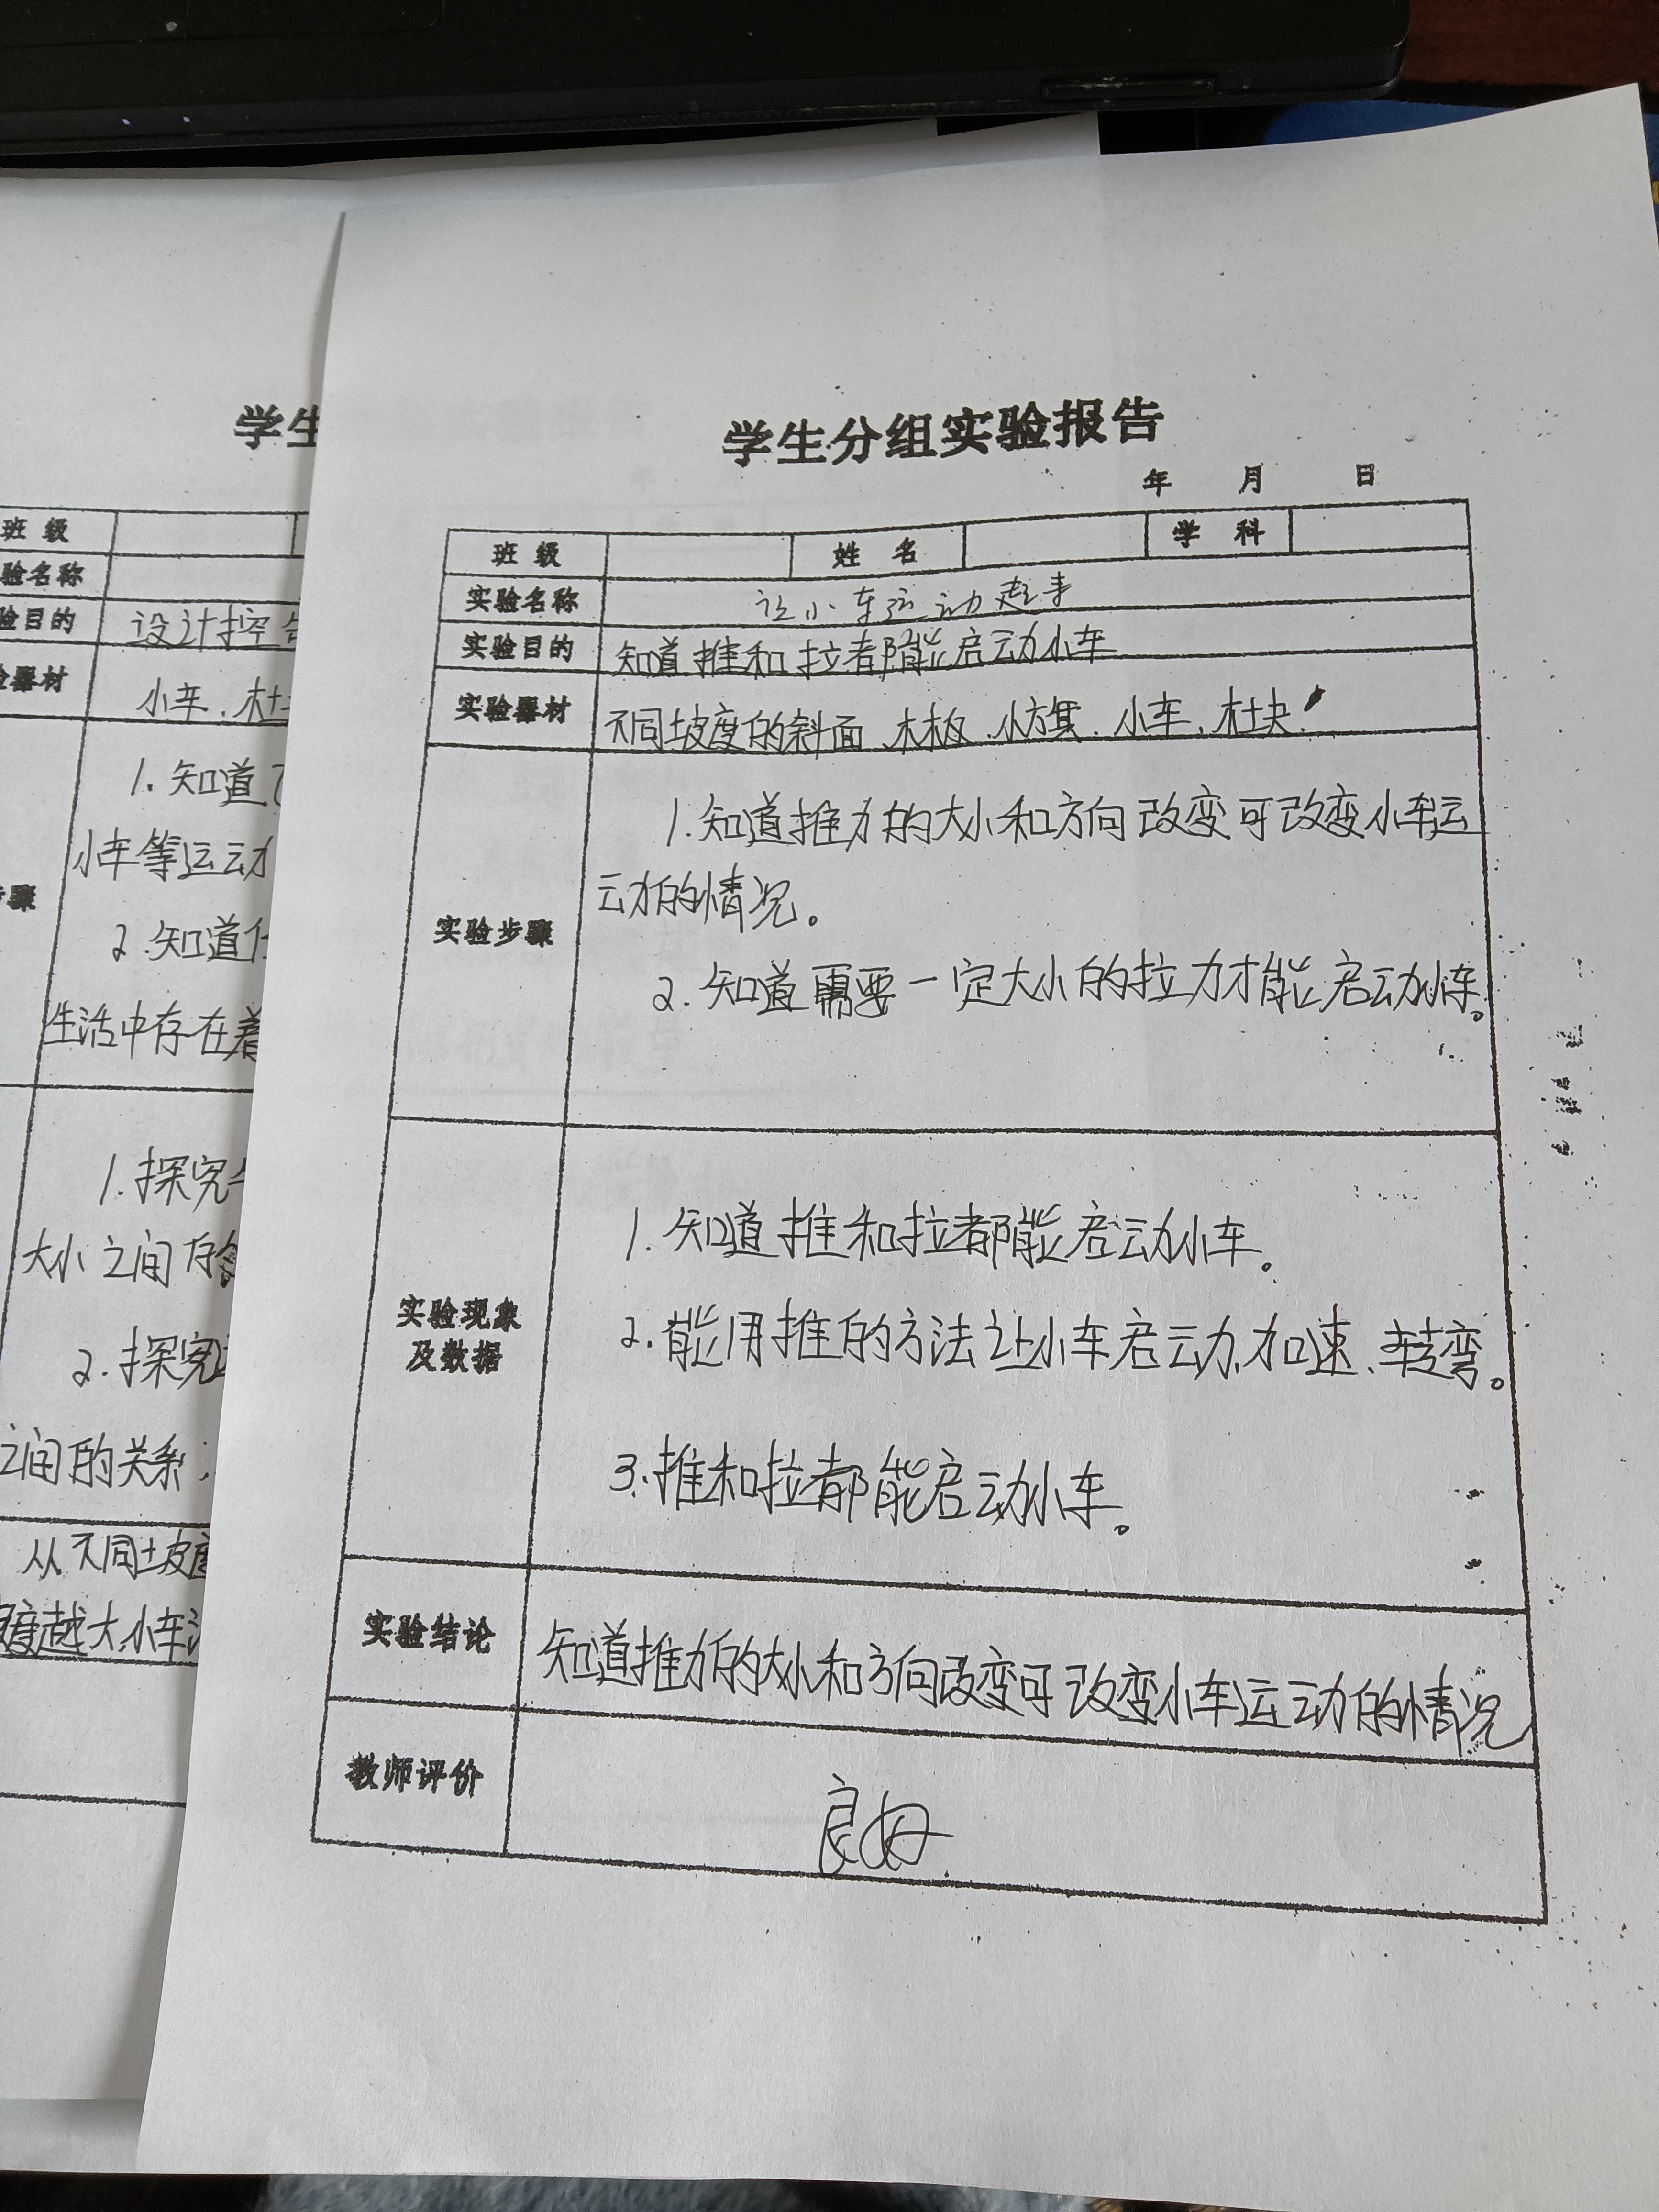 学生
班 级
验名称
验目的 设计控
器材 小车、木块
1. 知道
小车等运动
骤
2. 知道
生活中存在着
1. 探究
大小之间存
2. 探究
之间的关系
从不同坡度
度越大,小车
学生分组实验报告
年 月 日
班 级 姓 名 学 科
实验名称 让小车运动起来
实验目的 知道推和拉都能启动小车
实验器材 不同坡度的斜面、木板、小方旗、小车、木块
1. 知道推力的大小和方向改变可改变小车运
动的情况。
实验步骤
2. 知道需要一定大小的拉力才能启动小车。
1. 知道推和拉都能启动小车。
实验现象
及数据
2. 能用推的方法让小车启动、加速、转弯。
3. 推和拉都能启动小车。
实验结论 知道推力的大小和方向改变可改变小车运动的情况
教师评价 良好